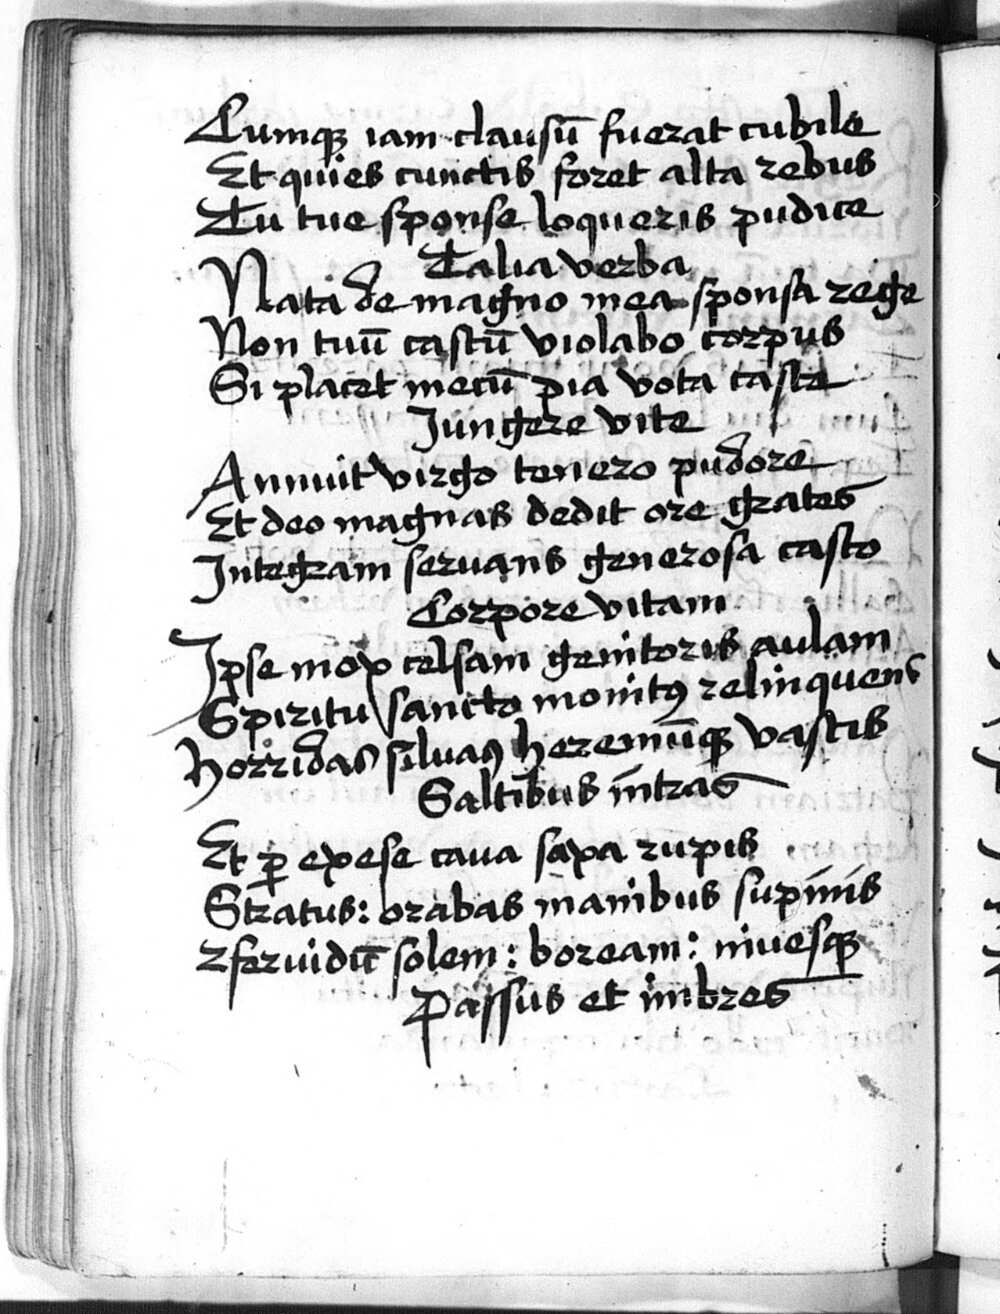 Cumqꝫ iam clausū fuerat cubile
Et quies cunctis foret alta rebus
Tu tue sponse loqueris pudice
Talia verba
Nata de magno mea sponsa rege
Non tuū castū violabo corpus
Si placet mecū pia vota caste
Jungere vite
Annuit virgo tenero pudore
Et deo magnas dedit ore grates
Integram seruans generosa casto
Corpore vitam
Ipse mox celsam genitoris aulam
Spiritu sancto monitꝰ relinquens
Horridas siluas heremūqꝫ vastis
Saltibus intras
Et ꝑ exese caua saxa rupis
Stratus: orabas manibus supinis
⁊ feruidū solem: boream: niuesqꝫ
Passus et imbres